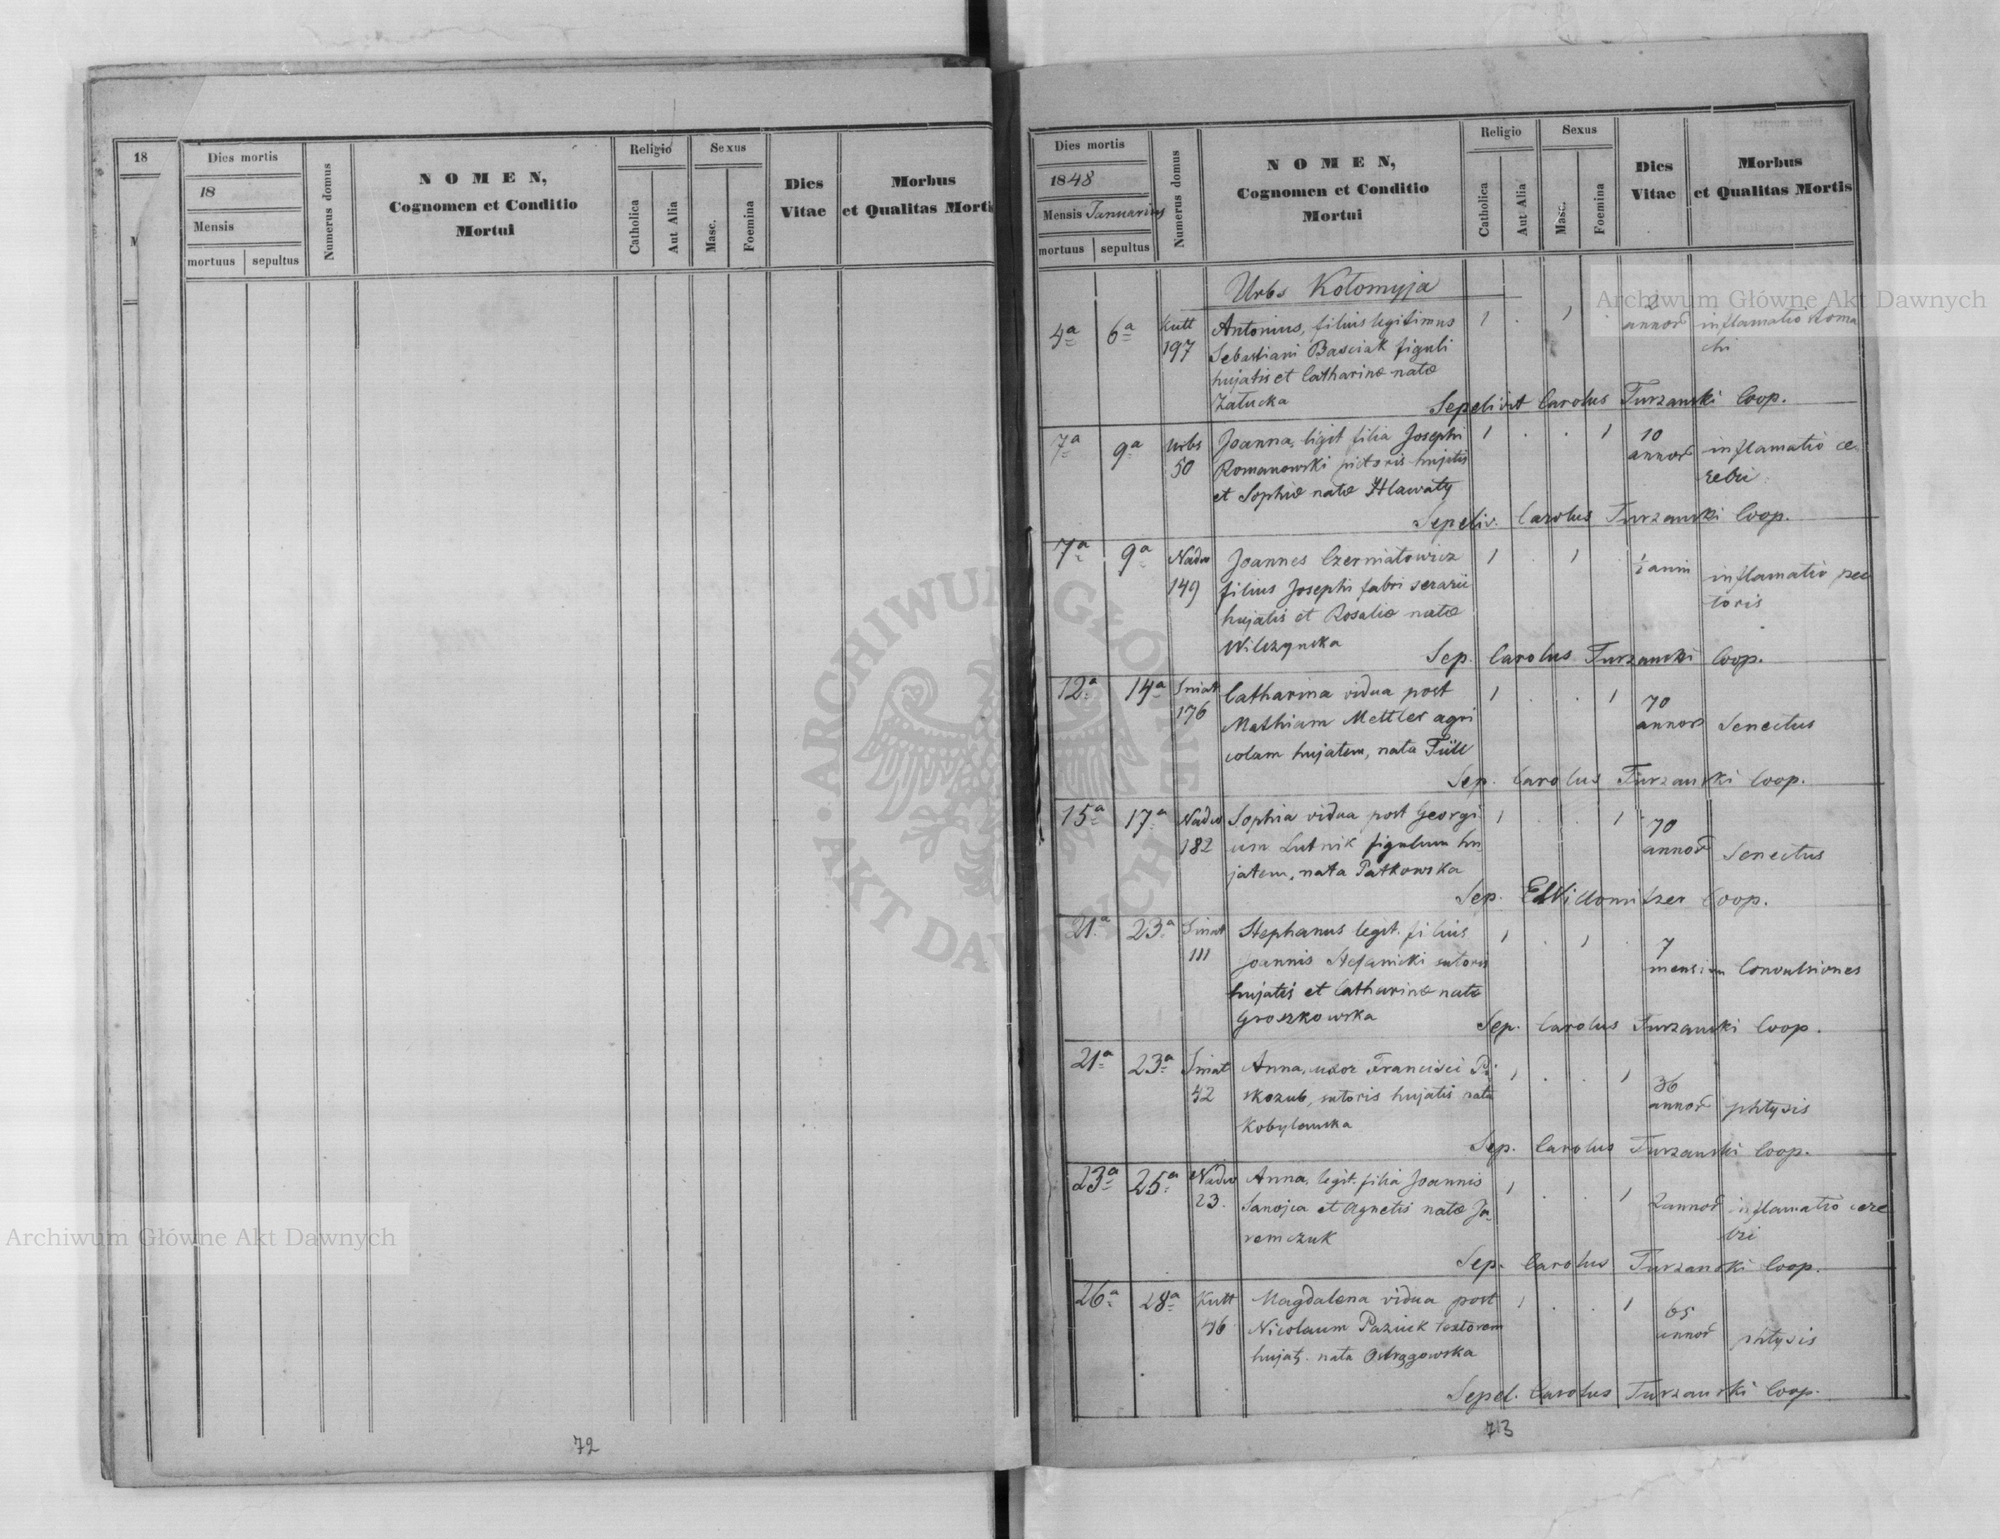 18
Dies mortis
18
Mensis
mortuus sepultus
Numerus domus
NOMEN,
Cognomen et Conditio
Mortui
Religio
Catholica
Aut Alia
Sexus
Masc.
Foemina
Dies
Vitae
Morbus
et Qualitas Mortis
72
Dies mortis
1848
Mensis Januarius
mortuus sepultus
Numerus domus
NOMEN,
Cognomen et Conditio
Mortui
Religio
Catholica
Aut Alia
Sexus
Masc.
Foemina
Dies
Vitae
Morbus
et Qualitas Mortis
Urbs Kołomyja
4a 6a Kutt 197 Antonius, filius legitimus 1 . 1 . 2 annor inflamatio stoma
Sebastiani Basciak figuli chi
hujatis et Catharinæ natæ
Załucka Sepelivit Carolus Turzanski Coop.
7a 9a Urbs 50 Joanna, legit filia Josephi 1 . . 1 10 annor inflamatio ce
Romanowski pictoris hujatis rebri
et Sophiæ natæ Hlawaty
Sepeliv. Carolus Turzanski Coop.
7a 9a Nadw 149 Joannes Czerniatowicz 1 . 1 . 1 anni inflamatio pec
filius Josephi fabri serarii toris
hujatis et Rosaliæ natæ
Wilczyncka Sep. Carolus Turzanski Coop.
12a 14a Sniat 176 Catharina vidua post 1 . . 1 70 annor Senectus
Mathiam Mettler agri
colam hujatem, nata Füll
Sep. Carolus Turzanski Coop.
15a 17a Nadw 182 Sophia vidua post Georgi 1 . . 1 70 annor Senectus
um Lutnik figulum hu
jatem, nata Patkowska
Sep. Widomitzer Coop.
21a 23a Sniat 111 Stephanus legit. filius 1 . 1 . 7 mensium Convulsiones
Joannis Stefanicki sutoris
hujatis et Catharinæ natæ
Groszkowska Sep. Carolus Turzanski Coop.
21a 23a Sniat 42 Anna, uxor Francisci Pi 1 . . 1 36 annor phtysis
skozub, sutoris hujatis nata
Kobylanska
Sep. Carolus Turzanski Coop.
23a 25a Nadw 23. Anna, legit. filia Joannis 1 . . 1 2 annor inflamatio cere
Sanojca et Agnetis natæ Ja bri
remczuk
Sep. Carolus Turzanski Coop.
26a 28a Kutt 46 Magdalena vidua post 1 . . 1 65 annor phtysis
Nicolaum Paziuk textorem
hujat. nata Ostrągowska
Sepel. Carolus Turzanski Coop.
73
Archiwum Główne Akt Dawnych
Archiwum Główne Akt Dawnych
ARCHIWUM GŁÓWNE AKT DAWNYCH